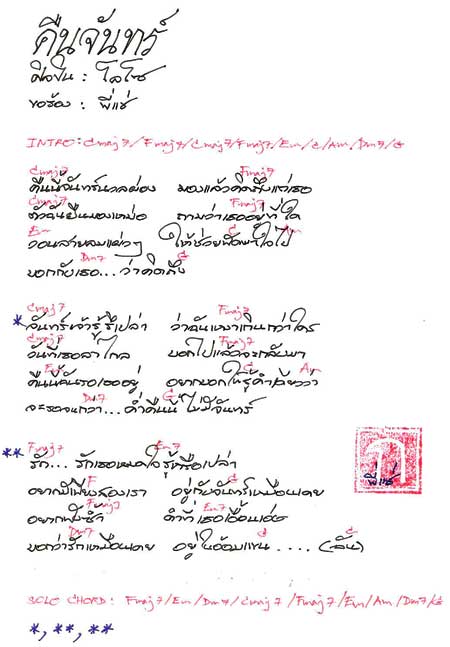 คืนจันทร์
ศิลปิน : โลโซ
ขอร้อง : พี่แช่
INTRO: Cmaj7/Fmaj7/Cmaj7/Fmaj7/Em/G/Am/Dm7/G
Cmaj7 Fmaj7
คืนนี้จันทร์นวลผ่อง มองแล้วคิดถึงแต่เธอ
Fmaj7
ตัวฉันยืนมองเหม่อ ถามว่าเธออยู่ที่ใด
Em G Am
วอนสายลมแผ่วๆ ให้ช่วยพัดพาใจไป
Dm7 G
บอกกับเธอ...ว่าคิดถึง
Cmaj7 Fmaj7
* จันทร์เจ้ารู้รึเปล่า ว่าฉันเหงาเกินกว่าใคร
Cmaj7 Fmaj7
วันที่เธอลาไกล บอกไปแล้วจะกลับมา
Em G Am
คืนนี้ฉันรอเธออยู่ อยากบอกให้รู้คำเดียวว่า
Dm7 G
จะรอจนกว่า...ค่ำคืนนี้ ไม่มีจันทร์
Fmaj7 Em7
** รัก... รักเธอหมดใจ รู้หรือเปล่า
F G
อยากมีเพียงสองเรา อยู่กับจันทร์เหมือนเคย
Fmaj7 Em7
อยากฟังซ้ำ คำที่เธอเอื้อนเอ่ย
Dm7 G G
บอกว่ารักเหมือนเคย อยู่ในอ้อมแขน .... (ฉัน)
พี่แช่
SOLO CHORD: Fmaj7/Em/Dm7/Cmaj7/Fmaj7/Em/Am/Dm7/G
*, **, **